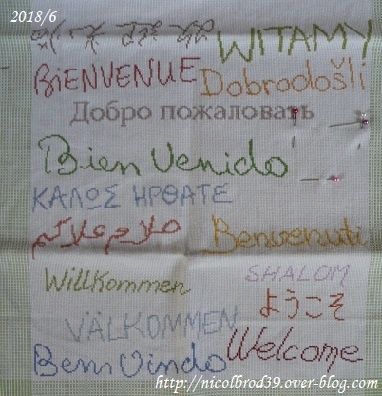 2018/6
WITAMY
BiENVENUE
Dobrodošli
Добро пожаловать
Bien Venido
ΚΑΛΩΣ ΗΡΘΑΤΕ
صلام علاكم
Benvenuti
Willkommen
SHALOM
ようこそ
VÄLKOMMEN
Bem Vindo
Welcome
http://nicolbrod39.over-blog.com